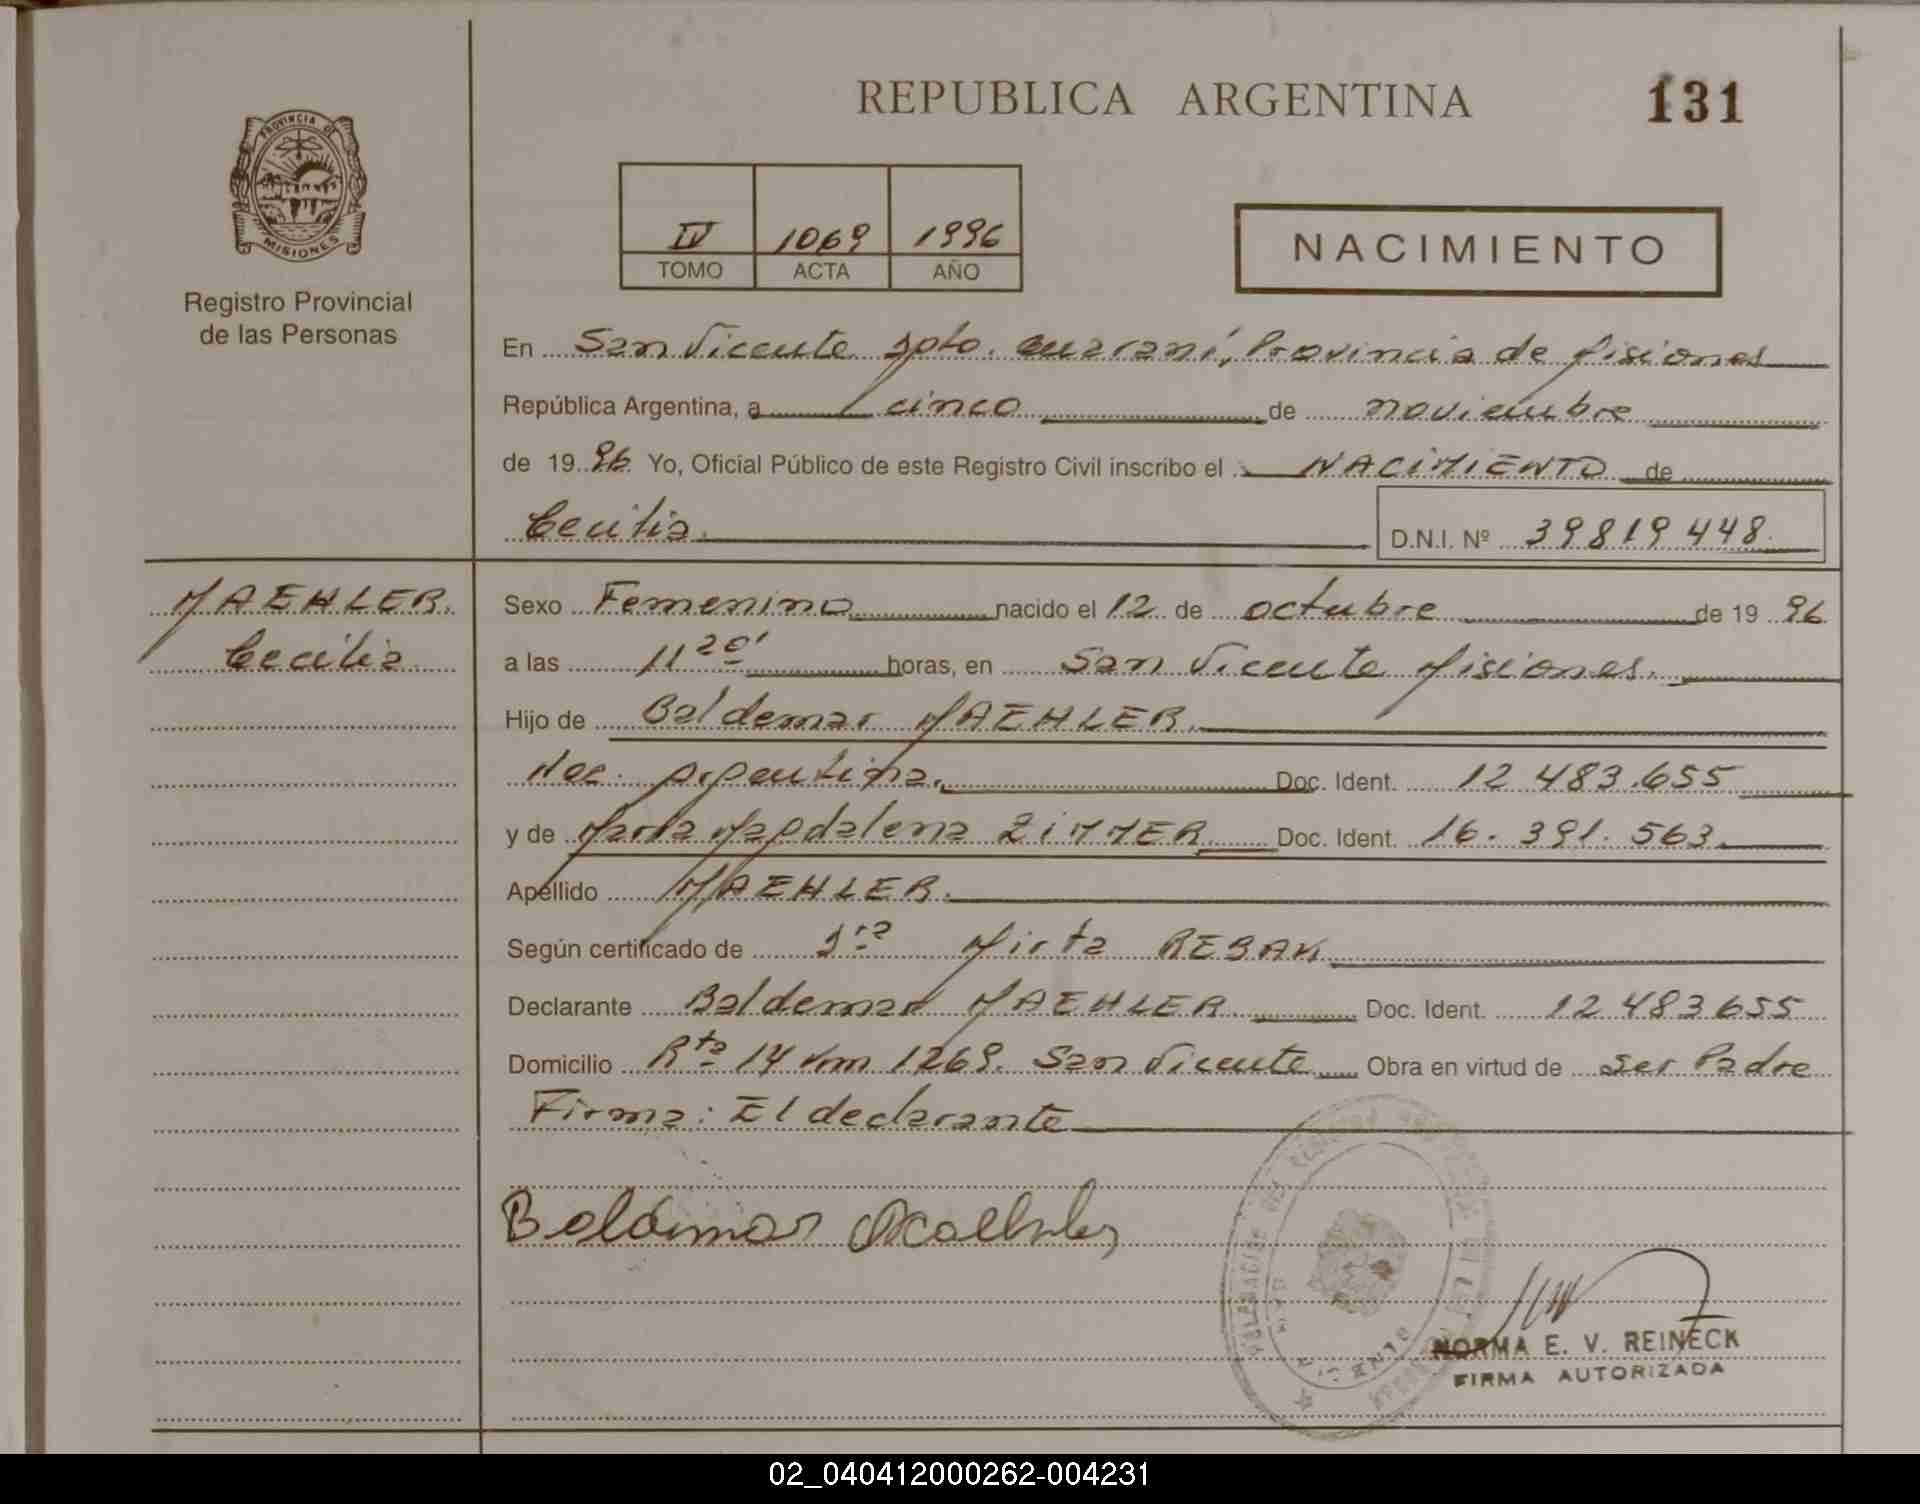 REPUBLICA ARGENTINA
131
PROVINCIA DE
MISIONES
Registro Provincial
de las Personas
IV 1069 1996
TOMO ACTA AÑO
NACIMIENTO
En San Vicente Dpto. Guaraní, Provincia de Misiones
República Argentina, a cinco de noviembre
de 1996 Yo, Oficial Público de este Registro Civil inscribo el NACIMIENTO de
Cecilia.
D.N.I. Nº 39819448.
MAEHLER.
Cecilia
Sexo Femenino nacido el 12 de octubre de 1996
a las 11 20' horas, en San Vicente Misiones.
Hijo de Baldemar MAEHLER.
Nac. Argentina. Doc. Ident. 12 483.655
y de Marta Magdalena ZIMMER. Doc. Ident. 16.391.563.
Apellido MAEHLER.
Según certificado de Dra Mirta REBAK
Declarante Baldemar MAEHLER. Doc. Ident. 12 483655
Domicilio Rta 14 km 1269. San Vicente Obra en virtud de ser Padre
Firma: El declarante
Baldemar Maehler
NORMA E. V. REINECK
FIRMA AUTORIZADA
02_040412000262-004231